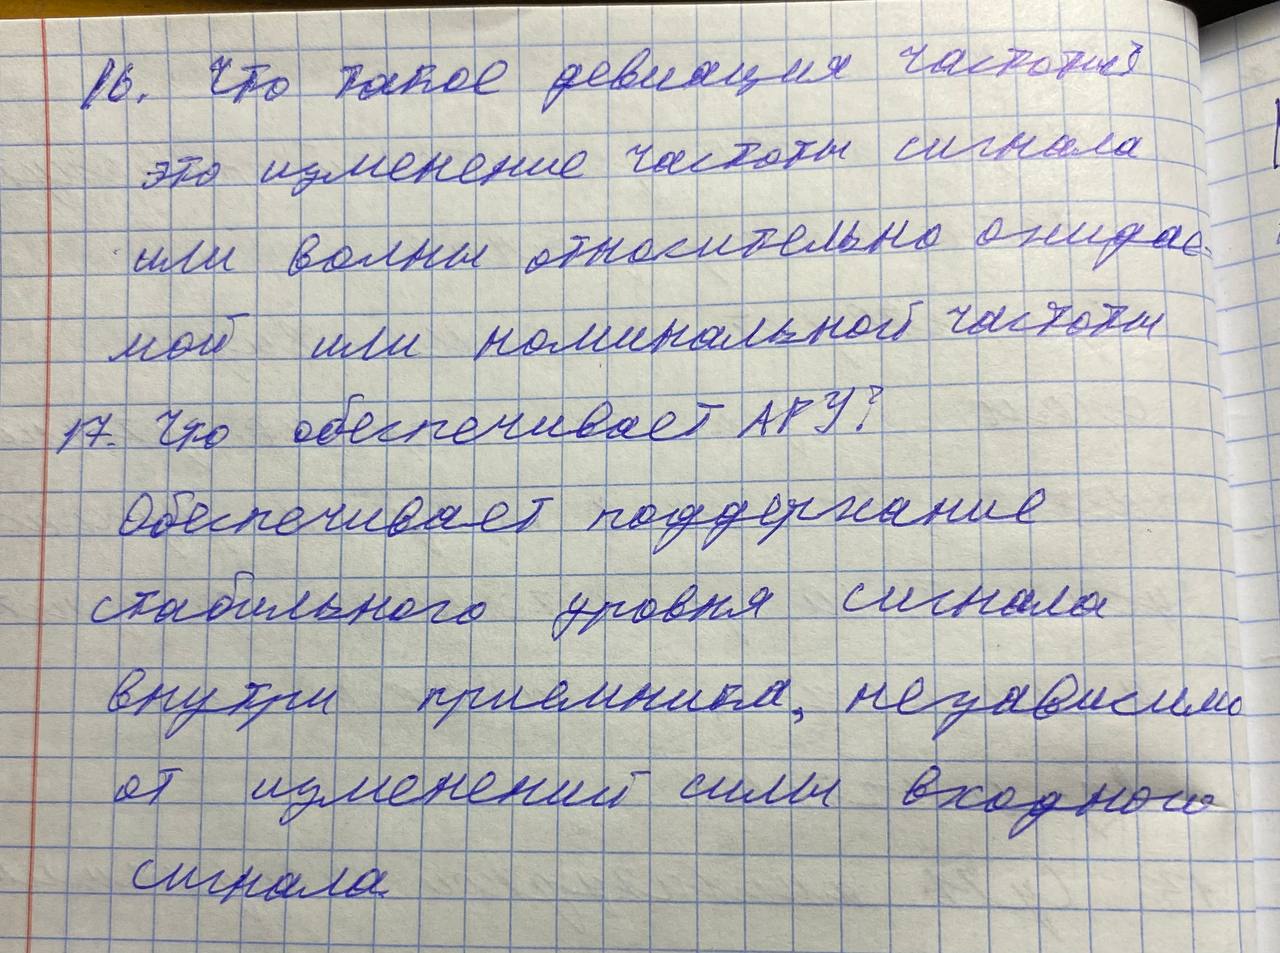 16. Что такое девиация частоты?
это изменение частоты сигнала
или волны относительно ожидае-
мой или номинальной частоты
17. Что обеспечивает АРУ?
Обеспечивает поддержание
стабильного уровня сигнала
внутри приемника, независимо
от изменений силы входного
сигнала